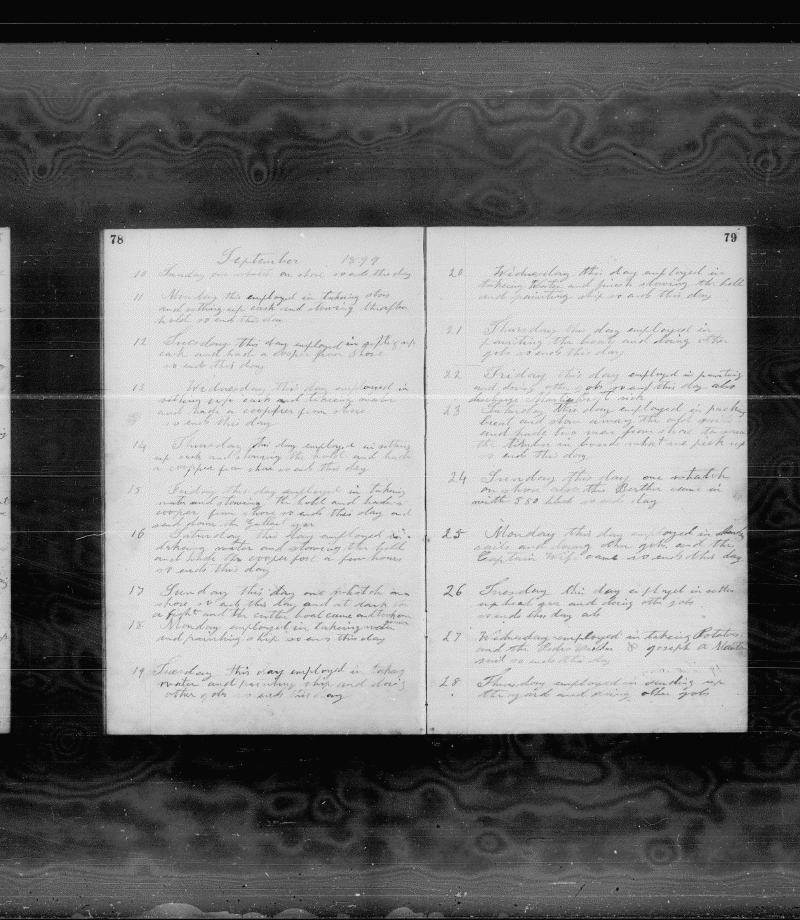 78
September 1899
10 Sunday one watch on shore so ends the day
11 Monday this employed in taking stors
and setting up cask and stowing the after
hold so end this day
12 Tuesday this day employed in setting up
cask and had a cooper from shore
so ends this day
13 Wednesday this day employed in
setting up cask and takeing water
and had a coopper from shore
so ends this day
14 Thursday this day employed in setting
up cask and stowing the hold and had
a coopper from shore so ends this day
15 Friday this day employed in taking
water and stowing the hold and had a
cooper from shore so ends this day and
send down the gear
16 Saturday this day employed in
water and stowing the hold
and had the cooper for a few hours
so ends this day
17 Sunday this day one watch on
shore so ends this day and at dark
a fight and the cutter boat came
18 Monday employed in takeing water
and painting ship so ends this day
19 Tuesday this day employed in takeing
water and painting ship and doing
other jobs so ends this day
79
20 Wednesday this day employed in
takeing water and finish stowing the hold
and painting ship so ends this day
21 Thursday this day employed in
painting the boats and doing other
jobs so ends this day
22 Friday this day employed in painting
and doing other jobs so ends this day also
discharge sick
23 Saturday this day employed in
bread and stow away the
and had two men from shore
the in board what we pick up
so ends this day
24 Sunday this day one watch
on shore also this Berther came in
with 550 so ends day
25 Monday this day employed in
sails and doing other jobs and the
Captain Wife came so ends this day
26 Tuesday this day employed in
up boat gear and doing other jobs
so ends this day
27 Wednesday employed in takeing Potatos
and the & Joseph a
sail so ends this day
28 Thursday employed in sending up
the yard and doing other jobs